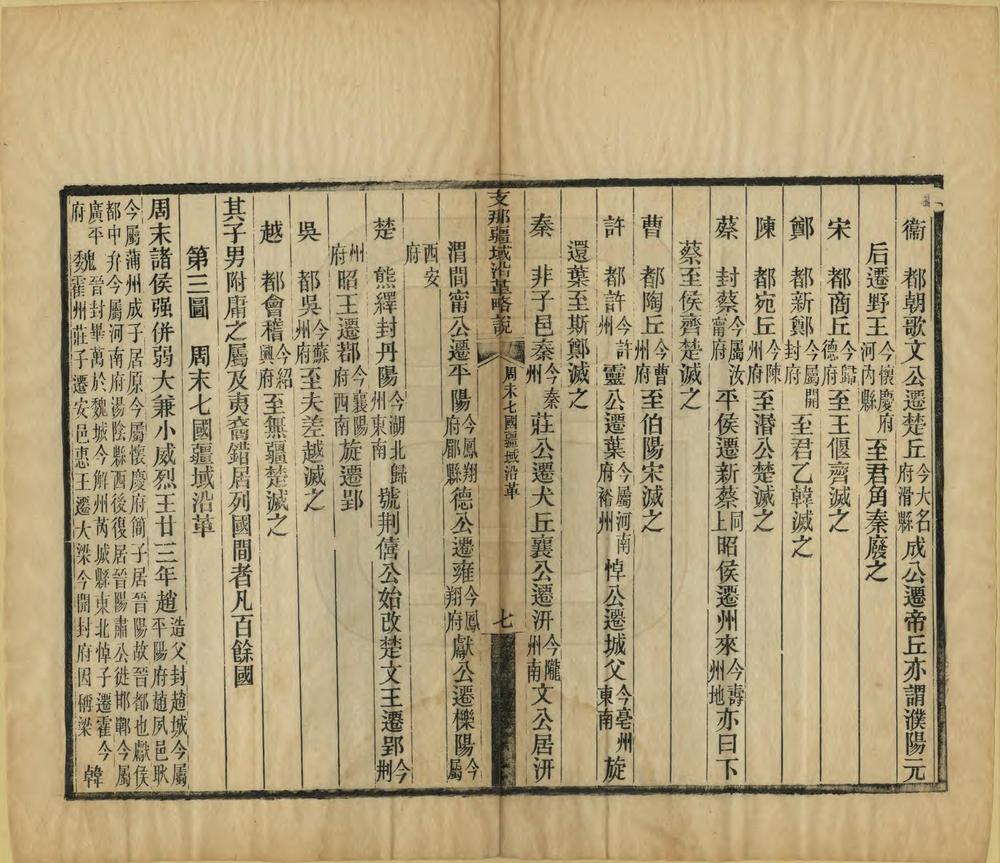 衞　都朝歌文公遷楚丘今大名府滑縣成公遷帝丘亦謂濮陽元
后遷野王今懷慶府河內縣至君角秦廢之
宋　都商丘今歸德府至王偃齊滅之
鄭　都新鄭今屬開封府至君乙韓滅之
陳　都宛丘今陳州府至湣公楚滅之
蔡　封蔡今屬汝甯府平侯遷新蔡同上昭侯遷州來今壽州地亦曰下
蔡至侯齊楚滅之
曹　都陶丘今曹州府至伯陽宋滅之
許　都許今許州靈公遷葉今屬河南府裕州悼公遷城父今亳州東南旋
還葉至斯鄭滅之
秦　非子邑秦今秦州莊公遷犬丘襄公遷汧今隴州南文公居汧
支那疆域沿革略說　周末七國疆域沿革　七
渭間甯公遷平陽今鳳翔府郿縣德公遷雍今鳳翔府獻公遷櫟陽今屬
西安府
楚　熊繹封丹陽今湖北歸州東南號荆僖公始改楚文王遷郢今荆
州府昭王遷鄀今襄陽府西南旋遷郢
吳　都吳今蘇州府至夫差越滅之
越　都會稽今紹興府至無疆楚滅之
其子男附庸之屬及夷裔錯居列國間者凡百餘國
第三圖　周末七國疆域沿革
周末諸侯强併弱大兼小威烈王廿三年趙造父封趙城今屬平陽府趙夙邑耿
今屬蒲州成子居原今屬懷慶府簡子居晉陽故晉都也獻侯
都中牟今屬河南府湯陰縣西後復居晉陽肅公徙邯鄲今屬
廣平府魏晉封畢萬於魏城今解州芮城縣東北悼子遷霍今
霍州莊子遷安邑惠王遷大梁今開封府因稱梁韓